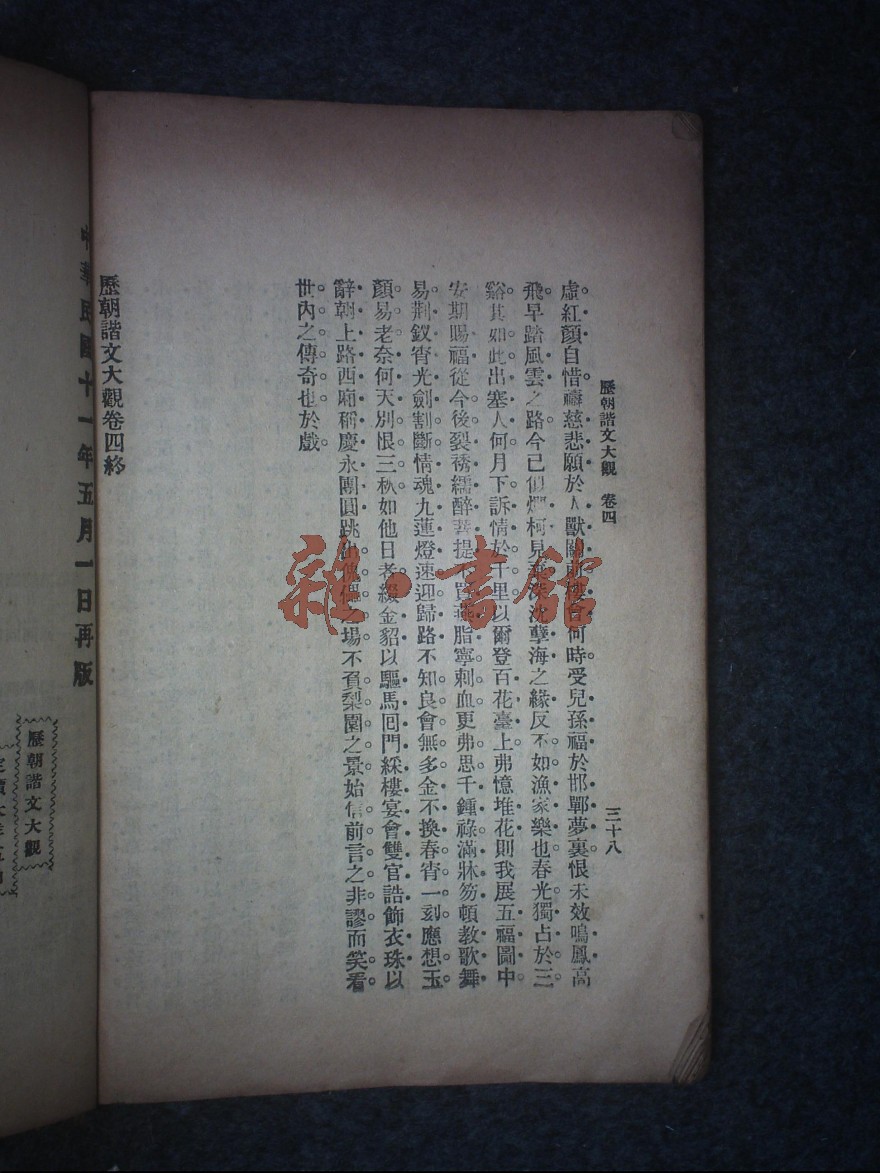 歷朝諧文大觀 卷四
三十八
虛紅顏自惜禱慈悲願於人獸關兩樓會何時受兒孫福於邯鄲夢裏恨未效鳴鳳高
飛早踏風雲之路今已似爛柯見深沈孽海之緣反不如漁家樂也春光獨占於三
谿其如此出塞人何月下訴情於千里以爾登百花臺上弗憶堆花則我展五福圖中
安期賜福從今後裂裯繻醉菩提不買燕脂寧刺血更弗思千鍾祿滿牀笏頓教歌舞
易荆釵宵光劍割斷情魂九蓮燈速迎歸路不知良會無多金不換春宵一刻應想玉
顏易老奈何天別恨三秋如他日者綴金貂以驅馬囘門綵樓宴會雙官誥飾衣珠以
辭朝上路西廂稱慶永團圓跳出傀儡之場不負梨園之景始信前言之非謬而笑看
世內之傳奇也於戲
歷朝諧文大觀卷四終
中華民國十一年五月一日再版
歷朝諧文大觀
定價大洋
雜·書館